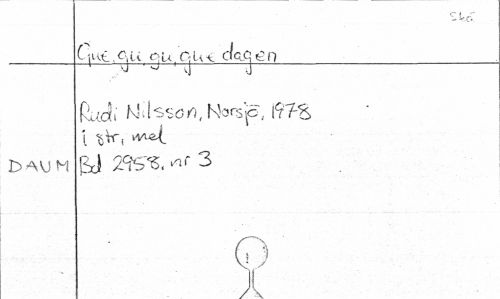 Skå
Gue, gu, gu, gue dagen
Rudi Nilsson, Norsjö, 1978
1 str, mel
DAUM Bd 2958, nr 3